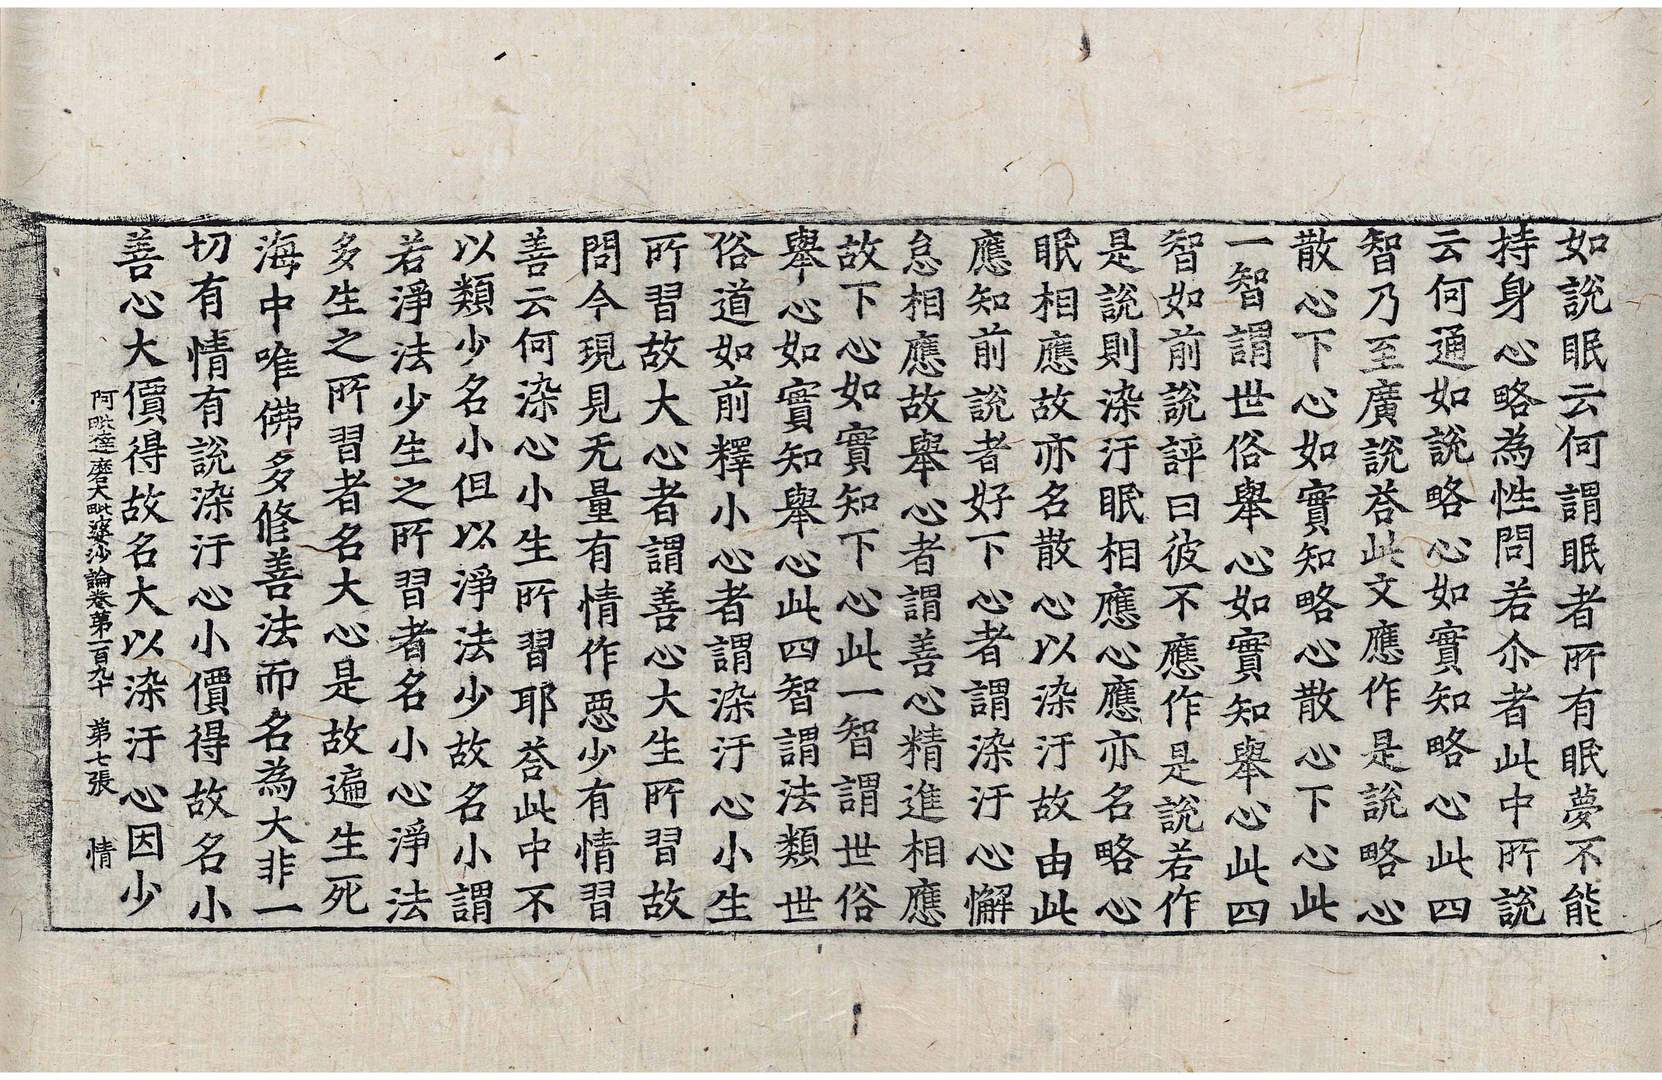 如說眠云何謂眠者所有眠夢不能
持身心略為性問若尒者此中所說
云何通如說略心如實知略心此四
智乃至廣說荅此文應作是說略心
散心下心如實知略心散心下心此
一智謂世俗舉心如實知舉心此四
智如前說評曰彼不應作是說若作
是說則染汙眠相應心應亦名略心
眠相應故亦名散心以染汙故由此
應知前說者好下心者謂染汙心懈
怠相應故舉心者謂善心精進相應
故下心如實知下心此一智謂世俗
舉心如實知舉心此四智謂法類世
俗道如前釋小心者謂染汙心小生
所習故大心者謂善心大生所習故
問今現見无量有情作惡少有情習
善云何染心小生所習耶荅此中不
以類少名小但以淨法少故名小謂
若淨法少生之所習者名小心淨法
多生之所習者名大心是故遍生死
海中唯佛多修善法而名為大非一
切有情有說染汙心小價得故名小
善心大價得故名大以染汙心因少
阿毗達磨大毗婆沙論卷第一百九十 第七張 情